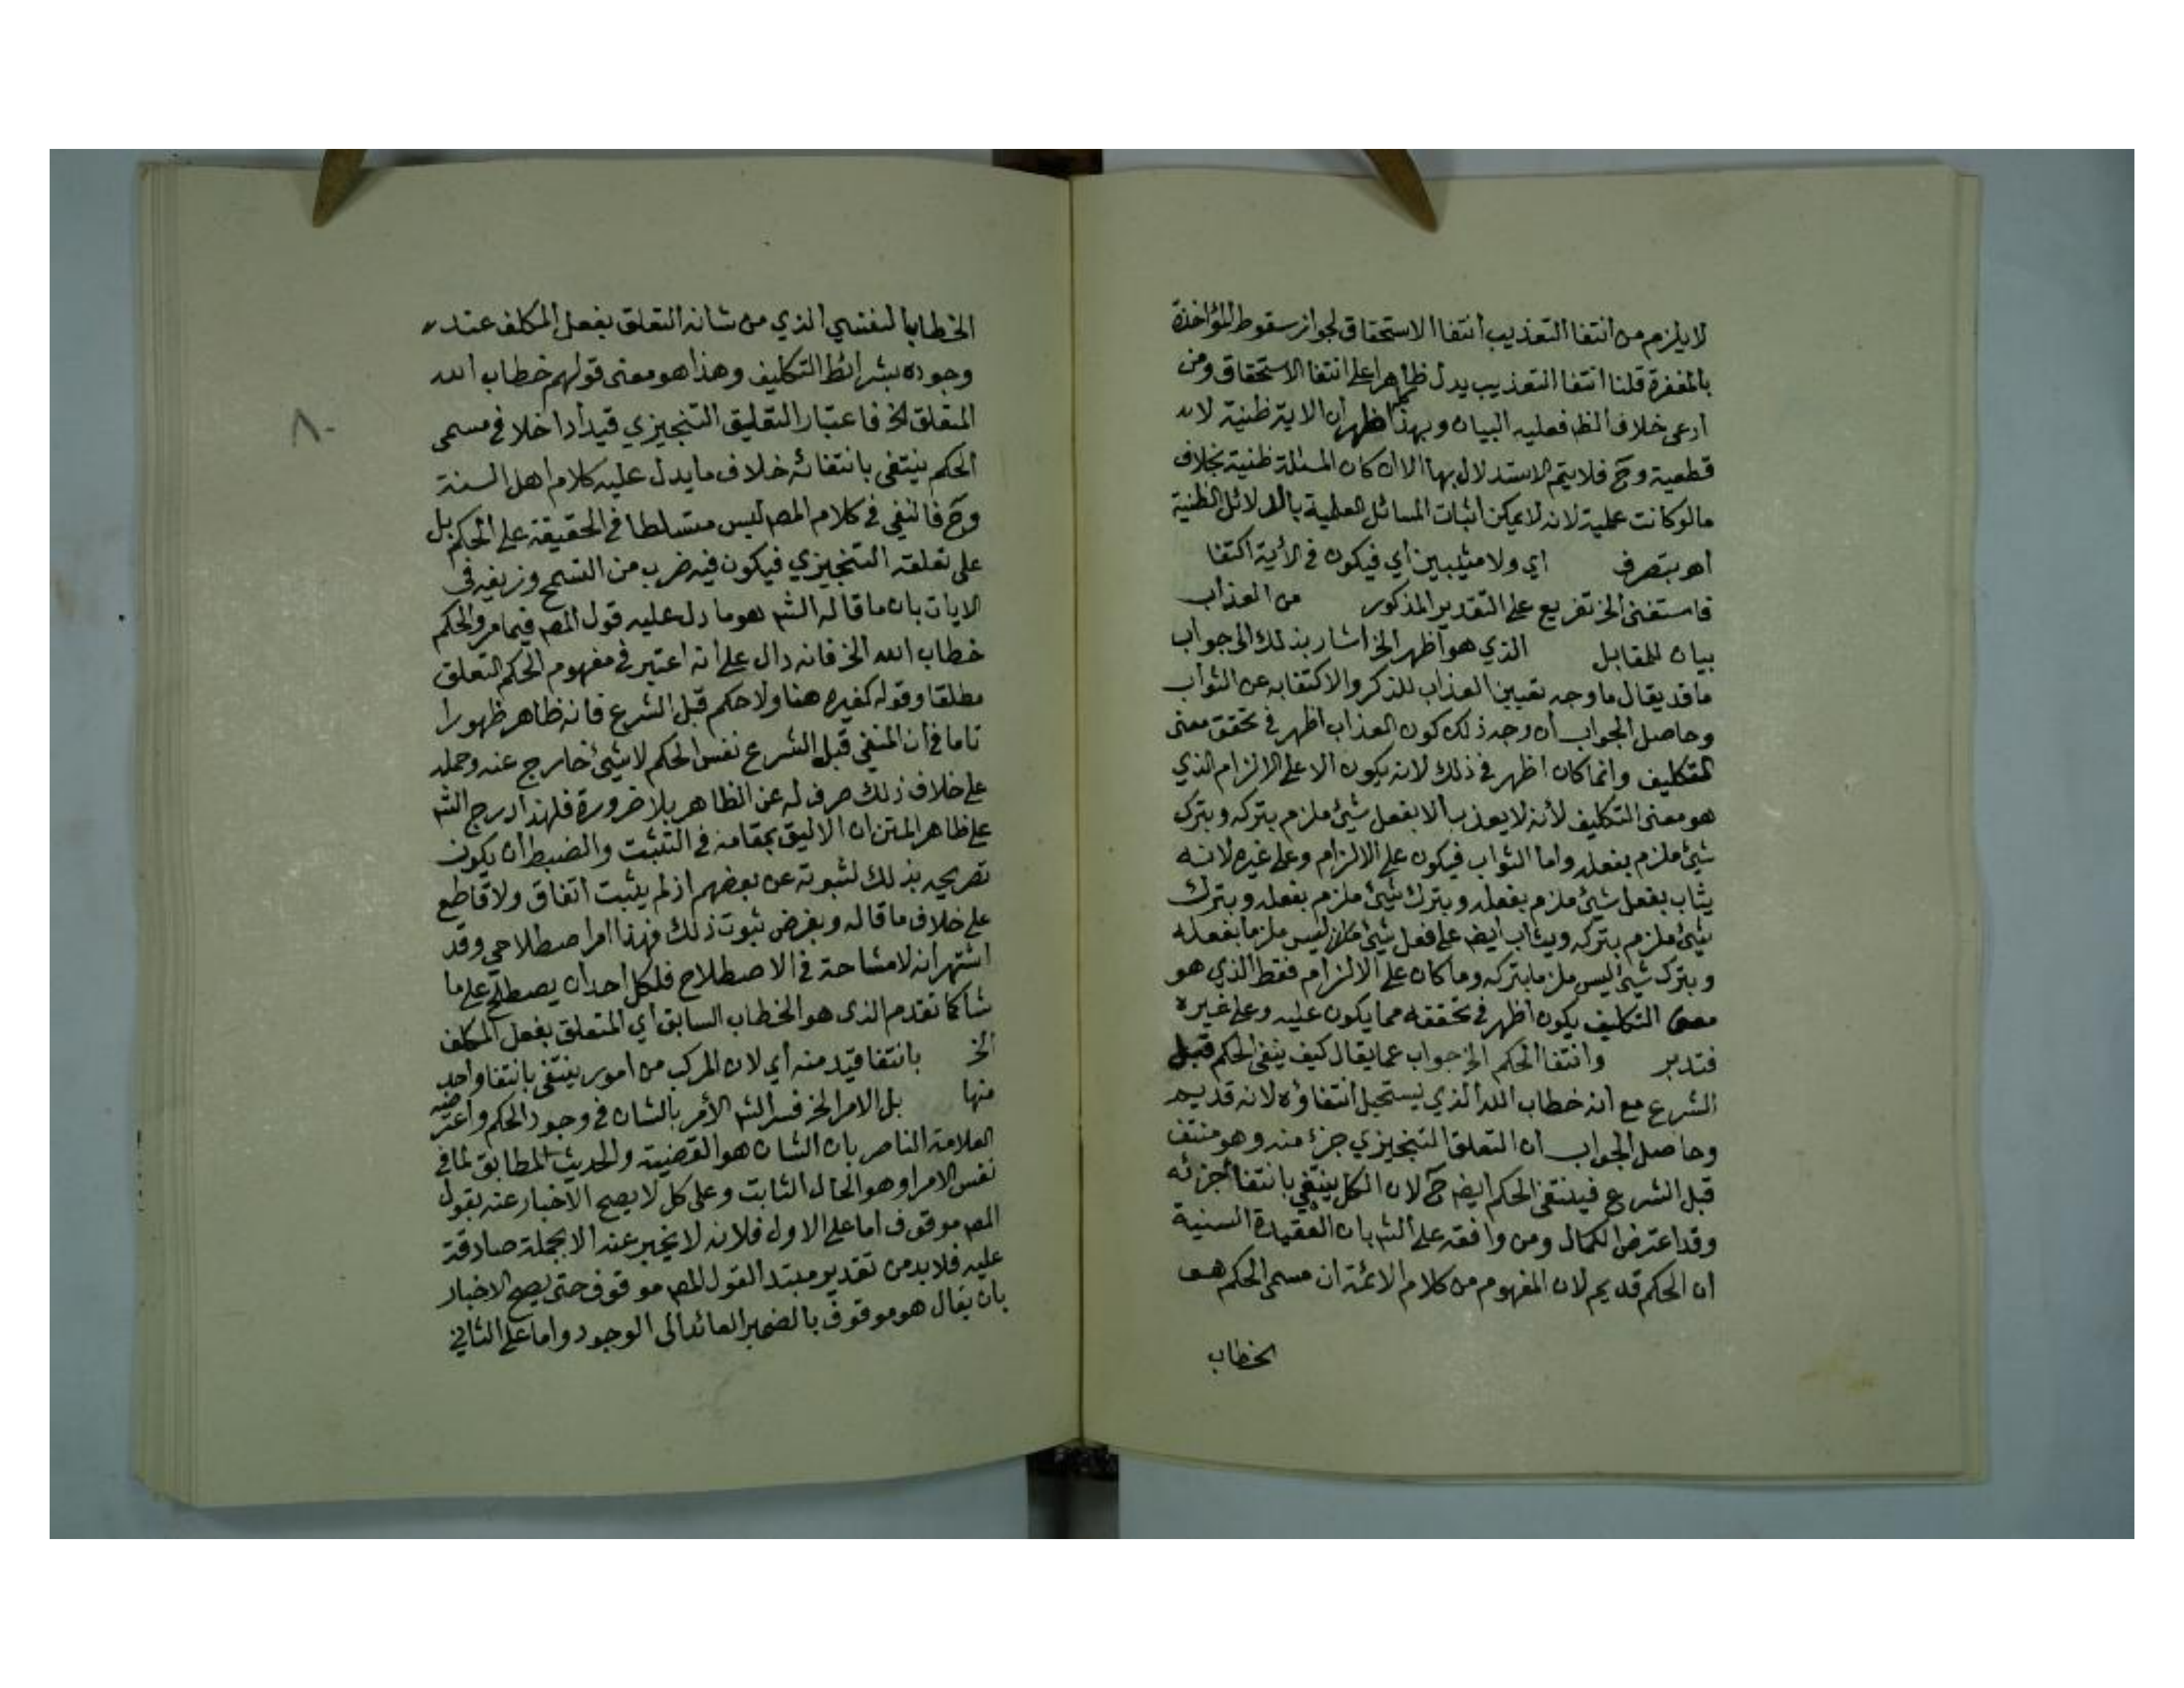 لا يلزم من انتفا التعذيب انتفا الاستحقاق لجواز سقوط المؤاخذة
بالمغفرة قلنا انتفا التعذيب يدل ظاهرا على انتفا الاستحقاق ومن
ادعى خلاف الظ فعليه البيان وبهذا ظهر ان الاية ظنية لا
قطعية وح فلا يتم الاستدلال بها الا ان كان المسئلة ظنية بخلاف
ما لو كانت علمية لانه لا يمكن اثبات المسائل العلمية بالدلائل الظنية
اهـ بتصرف اي ولا مثيبين أي فيكون في الأية اكتفا
فاستغنى الخ تفريع على التقدير المذكور من العذاب
بيان للمقابل الذي هو اظهر الخ اشار بذلك الى جواب
ما قد يقال ما وجه تعيين العذاب للذكر والاكتفا به عن الثواب
وحاصل الجواب ان وجه ذلك كون العذاب اظهر في تحقق معنى
التكليف وانما كان اظهر في ذلك لانه يكون الا على الالزام الذي
هو معنى التكليف لأنه لا يعذب الا بفعل شيئ ملزم بتركه وبترك
شيئ ملزم بفعله واما الثواب فيكون على الالزام وعلى غيره لانه
يثاب بفعل شيئ ملزم بفعله وبترك شيئ ملزم بفعله وبترك
شيئ ملزم بتركه ويثاب ايض على فعل شيئ ليس ملزما بفعله
وبترك شيئ ليس ملزما بتركه وما كان على الالزام فقط الذي هو
معنى التكليف يكون اظهر في تحققه مما يكون عليه وعلى غيره
فتدبر وانتفا الحكم الخ جواب عما يقال كيف ينفى الحكم قبل
الشرع مع انه خطاب الله الذي يستحيل انتفاؤه لانه قديم
وحاصل الجواب ان التعلق التنجيزي جزء منه وهو منتف
قبل الشرع فينتفى الحكم ايض ح لان الكل ينتفي بانتفا جزئه
وقد اعترض الكمال ومن وافقه على الش بان العقيدة السنية
ان الحكم قديم لان المفهوم من كلام الائمة ان مسمى الحكم هو
الخطاب
الخطاب النفسي الذي من شانه التعلق بفعل المكلف عند
وجوده بشرائط التكليف وهذا هو معنى قولهم خطاب الله
المتعلق الخ فاعتبار التعليق التنجيزي قيدا داخلا في مسمى
٨٠
الحكم ينتفى بانتفائه خلاف ما يدل عليه كلام اهل السنة
وح فالنفي في كلام المص ليس متسلطا في الحقيقة على الحكم بل
على تعلقه التنجيزي فيكون فيه ضرب من التسمح وزيفه في
الايات بان ما قاله الش هو ما دل عليه قول المص فيما مر والحكم
خطاب الله الخ فانه دال على انه اعتبر في مفهوم الحكم التعلق
مطلقا وقوله كغيره هنا ولا حكم قبل الشرع فانه ظاهر ظهورا
تاما في أن المنفي قبل الشرع نفس الحكم لا شيئ خارج عنه وحمله
على خلاف ذلك صرف له عن الظاهر بلا ضرورة فلهذا درج الش
على ظاهر المتن ان الاليق بمقامه في التثبت والضبط ان يكون
تصريحه بذلك لثبوته عن بعضهم اذ لم يثبت اتفاق ولا قاطع
على خلاف ما قاله وبفرض ثبوت ذلك فهذا امر اصطلاحي وقد
اشتهر انه لا مشاحة في الاصطلاح فلكل احد ان يصطلح على ما
شا كما تقدم الذي هو الخطاب السابق أي المتعلق بفعل المكلف
الخ بانتفا قيد منه أي لان المركب من امور ينتفي بانتفا واحد
منها بل الامر الخ فسر الش الأمر بالشان في وجود الحكم واعترضه
العلامة الناصر بان الشان هو القضية والحديث المطابق لما في
نفس الامر او هو الحال الثابت وعلى كل لا يصح الاخبار عنه بقول
المص موقوف اما على الاول فلانه لا يخبر عنه الا بجملة صادقة
عليه فلا بد من تقدير مبتدا لقول المص موقوف حتى يصح الاخبار
بان يقال هو موقوف بالضمير العائد الى الوجود واما على الثاني